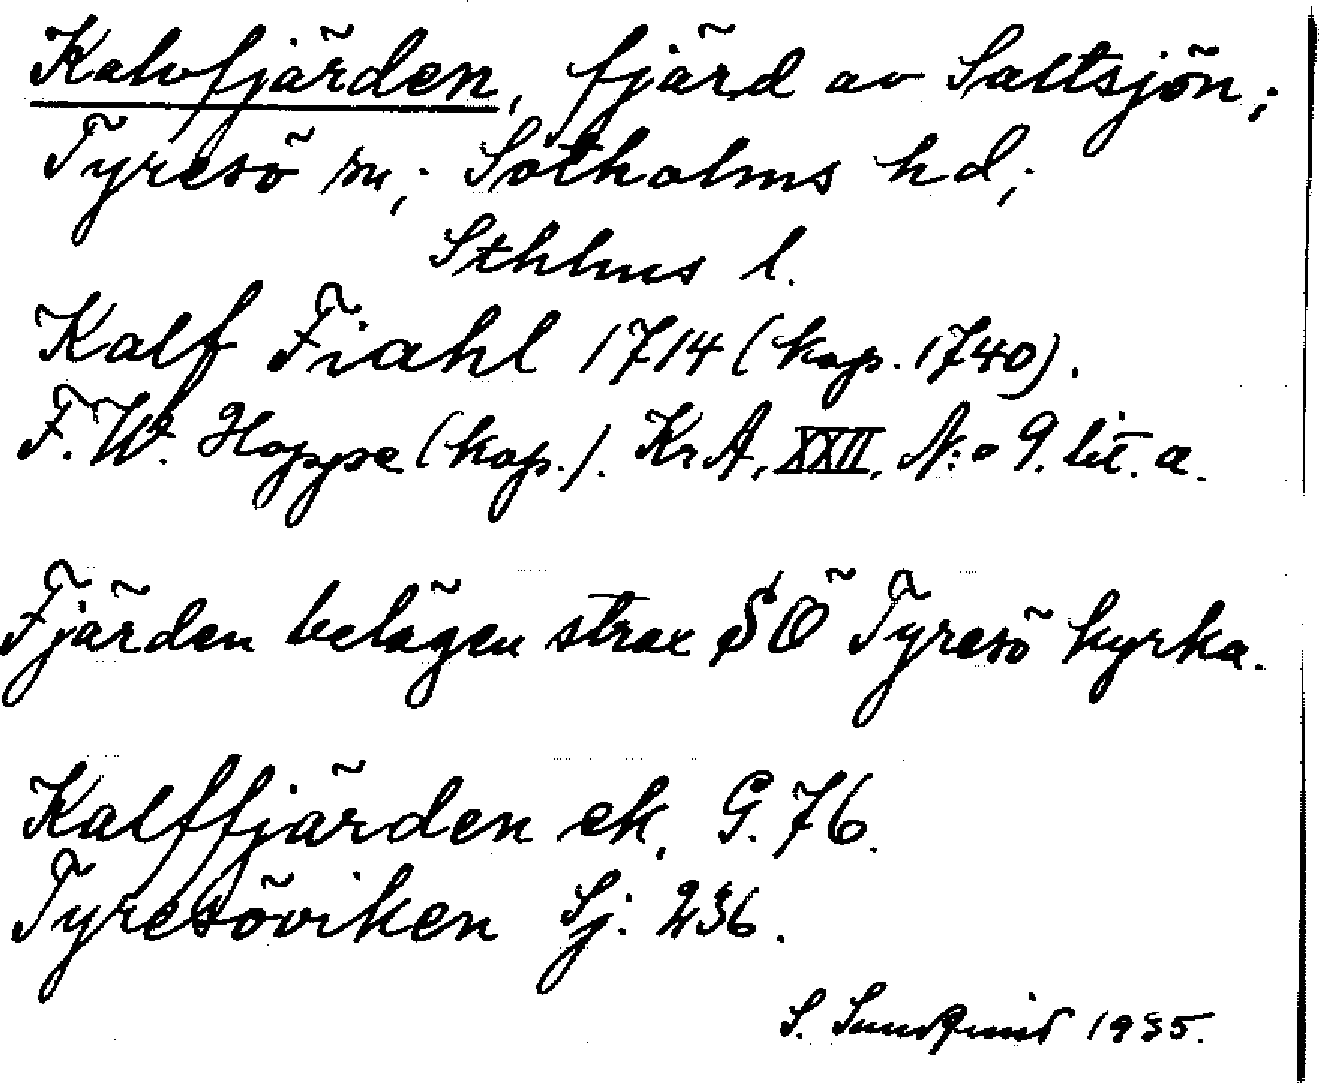 Kalvfjärden, fjärd av Saltsjön;
Tyresö sn; Sotholms hd;
Sthlms l.
Kalf Fiahl 1714 (kop. 1740).
F. W. Hoppe (kop.). KrA, XXII, N:o 9. lit. a.
Fjärden belägen strax SÖ Tyresö kyrka.
Kalffjärden ek. G. 76.
Tyresöviken Sj: 236.
S. Sundqvist 1935.